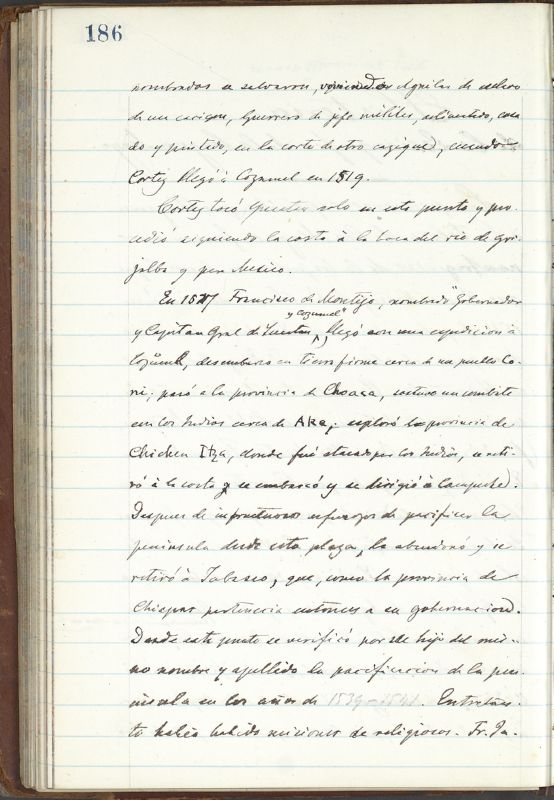 186
nombrados se salvaron, viviendo Aguilar de esclavo
de un cacique, Guerrero de jefe militar, adiestrado, casa
do y pintado, en la corte de otro cazique, cuando
Cortez llegó à Cozumel en 1519.
Cortez tocó Yucatan solo en este punto y pro
cedió siguiendo la costa à la boca del rio de Gri
jalba y para Mexico.
En 1527 Francisco de Montejo, nombrado "Gobernador
y Cozumel"
y Capitan Gral de Yucatan, llegó con una expedicion à
Cozumel, desembarcó en tierra firme cerca de un pueblo Co
ni; pasó a la provincia de Choaca, sostuvo un combate
con los Indios cerca de Ake; exploró la provincia de
Chichen Itza, donde fué atacado por los Indios, se reti
ró à la costa y se embarcó y se dirigió à Campeche.
Despues de infructuosos esfuerzos de pacificar la
peninsula desde esta plaza, la abandonó y se
retiró à Tabasco, que, como la provincia de
Chiapas pertenecia entonces a su gobernacion.
Desde este punto se verificó por el hijo del mis-
mo nombre y apellido la pacificacion de la pen
insula en los años de 1539-1541. Entretan
to habia habido misiones de religiosos. Fr. Ja.